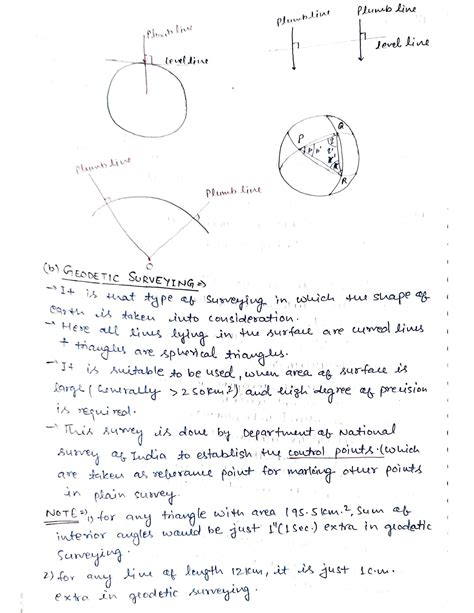 Plumb line
level line
Plumb line
Plumb line
level line
P
Q
R
Plumb line
Plumb line
O
(b) GEODETIC SURVEYING⇒
→ It is that type of Surveying in which the shape of
earth is taken into consideration.
→ Here all lines lying in the surface are curved lines
+ triangles are spherical triangles.
→ It is suitable to be used, when area of surface is
large (Generally > 250km²) and high degree of precision
is required.
→ This survey is done by Department of National
survey of India to establish the control points. (which
are taken as referance point for marking other points
in plain survey.
NOTE ⇒ 1) for any triangle with area 195.5km.², Sum of
interior angles would be just 1" (1 Sec.) extra in geodatic
Surveying.
2) for any line of length 12km, it is just 1cm.
extra in geodetic surveying.